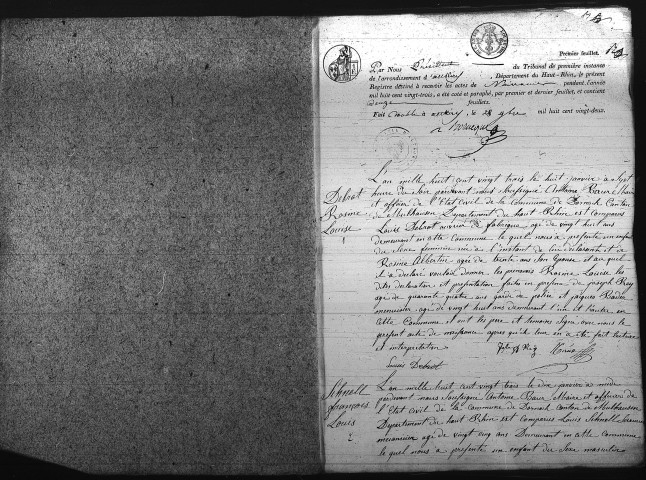 Premier feuillet.
Par Nous Président du Tribunal de première instance
de l'arrondissement d'altkirch Département du Haut-Rhin, le présent
Registre destiné à recevoir les actes de Naissance pendant l'année
mil huit cent vingt-trois, a été coté et paraphé, par premier et dernier feuillet, et contient
Douze feuillets.
Fait double à altkirch le 28 9bre mil huit cent vingt-deux.
Debrot
Rosine
Louise
1
L'an mille huit cent vingt trois le huit janvier à Sept
heure du Soir pardevant nous Soussigné Antoine Baur Maire
et officier de l'Etat civil de la Commune de Dornach Canton
de Mulhausen Departement du haut Rhin est comparus
Louis Debrot ouvrier de fabrique agé de vingt huit ans
demeurant en cette Commune le quel nous a presenté un enfant
du Sexe feminin né à l'instant de lui declarant et de
Rosine agée de trente ans Son Epouse et au quel
il a declaré vouloir donner les prenoms Rosine Louise les
dites declaration et presentation faites en presence de joseph Rey
agé de quarante quatre ans garde de police et jacques Bader
menuisier agé de vingt huit ans demeurant l'un et l'autre en
cette Commune et ont les pere et temoins Signé avec nous le
present acte de naissance apres qu'il leur en a été fait lecture
et interpretation
Louis Debrot
Schnell
françois
Louis
2
L'an mille huit cent vingt trois le dix janvier à midi
pardevant nous Soussigné Antoine Baur Maire et officier de
l'Etat civil de la Commune de Dornach Canton de Mulhausen
Departement du haut Rhin est comparus Louis Schnell
mecanicien agé de vingt cinq ans Demeurant en cette commune
le quel nous a presenté un enfant du Sexe masculin